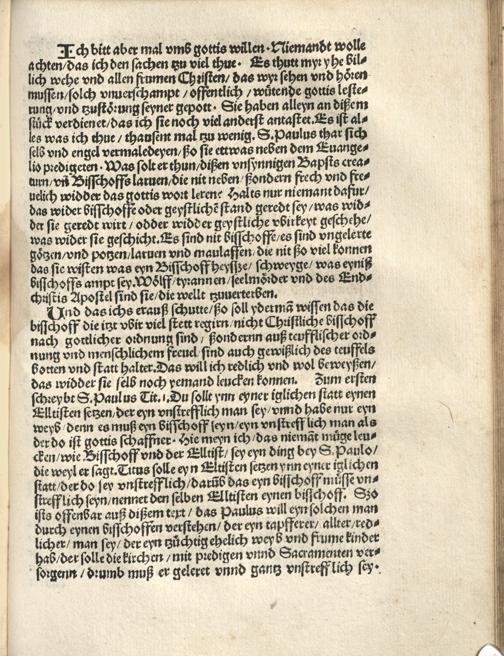 Ich bitt aber mal vmb gottis willen. Niemandt wolle
achten/das ich den sachen tzu viel thue. Es thutt myr yhe bil-
lich wehe vnd allen frumen Christen/das wyr sehen vnd hören
mussen/solch vnuerschampt/offentlich/wütende gottis leste-
rung/vnd tzustörung seyner gepott. Sie haben alleyn an dißem
stück verdienet/das ich sie noch viel anderst antastet. Es ist al-
les was ich thue/thausent mal zu wenig. S. Paulus thar sich
selb vnd engel vermaledeyen/ßo sie ettwas neben dem Euange-
lio predigeten. Was solt er thun/dißen vnsynnigen Bapsts crea-
turn/vñ Bisschoffs laruen/die nit neben/ßondern frech vnd fre-
uelich widder das gottis wort leren? Halts nur niemant dafur/
das wider bisschoffe oder geystlichē stand geredt sey/was wid-
der sie geredt wirt/odder widder geystliche vbirkeyt geschehe/
was wider sie geschicht. Es sind nit bisschoffe/es sind vngelerte
götzen/vnd potzen/laruen vnd maulaffen/die nit ßo viel konnen
das sie wisten was eyn Bisschoff heysse/schweyge/was eyniß
bisschoffs ampt sey. Wölff/tyrannen/seelmörder vnd des End-
christis Apostel sind sie/die wellt tzuuerterben.
Vnd das ichs erauß schutte/ßo soll yderman̄ wissen das die
bisschoff die itzt vbir viel stett regirn/nicht Christliche bisschoff
nach gottlicher ordnung sind/ßondernn auß teufflischer ord-
nung vnd menschlichem freuel sind auch gewißlich des teuffels
botten vnd statt halter. Das will ich redlich vnd wol beweyßen/
das widder sie selb noch yemand leucken konnen. Zum ersten
schreybt S. Paulus Tit. 1. Du sollt ynn eyner iglichen statt eynen
Elltisten setzen/der eyn vnstrefflich man sey/vnnd habe nur eyn
weyb/denn es muß eyn bisschoff seyn/eyn vnstrefflich man als
der do ist gottis schaffner. Hie meyn ich/das niemāt müge leu-
cken/wie Bisschoff vnd der Elltist/sey eyn ding bey S. Paulo/
die weyl er sagt. Titus solle eyn Eltisten setzen ynn eyner iglichen
statt/der do sey vnstrefflich/darūb das eyn bisschoff müsse vn-
strefflich seyn/nennet den selben Elltisten eynen bisschoff. Szo
ists offenbar auß dißem text/das Paulus will eyn solchen man
durch eynen bisschoffen verstehen/der eyn tapfferer/allter/red-
licher/man sey/der eyn tzüchtig ehelich weyb vnd frume kinder
hab/der solle die kirchen/mit predigen vnnd Sacramenten ver-
sorgenn/drumb muß er geleret vnnd gantz vnstrefflich sey.